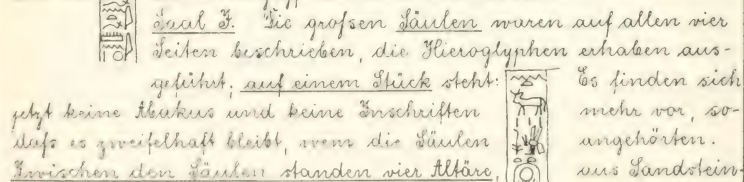 Saal F. Die großen Säulen waren auf allen vier
Seiten beschrieben, die Hieroglyphen erhaben aus-
geführt; auf einem Stück steht: Es finden sich
jetzt keine Abakus und keine Inschriften mehr vor, so-
daß es zweifelhaft bleibt, wem die Säulen angehörten.
Zwischen den Säulen standen vier Altäre, aus Sandstein-